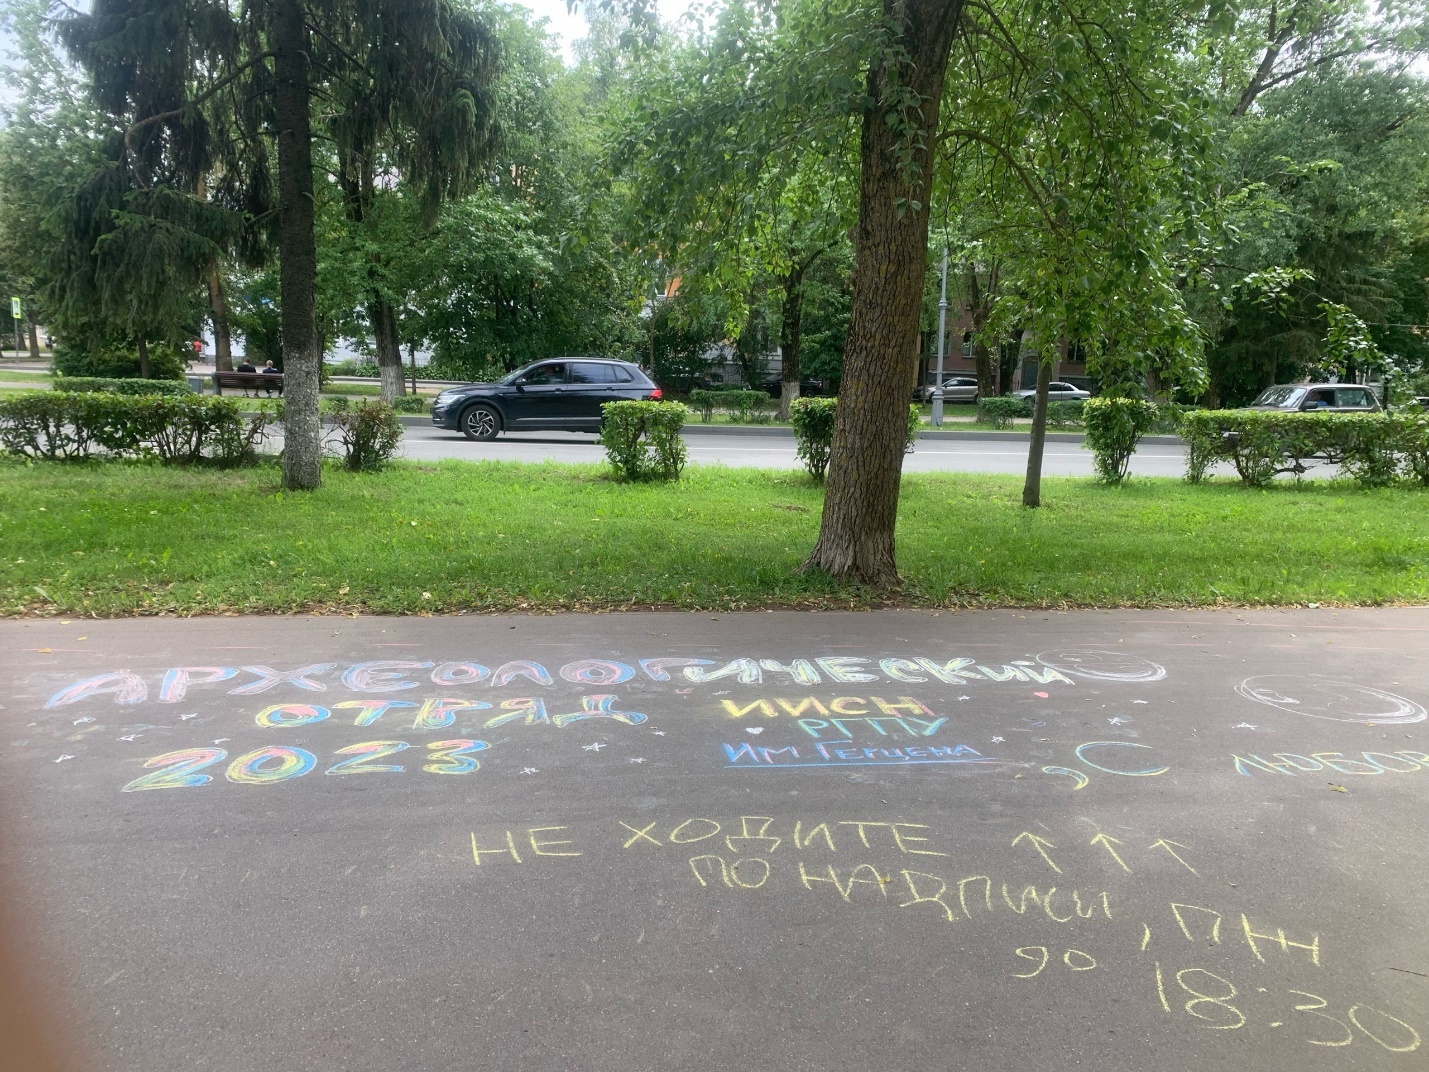 АРХЕОЛОГИЧЕСКИЙ
ОТРЯД
2023
ИИСН
РГПУ
ИМ ГЕРЦЕНА
С ЛЮБОВ
НЕ ХОДИТЕ ↑↑↑
ПО НАДПИСИ, ПЖ
до 18:30